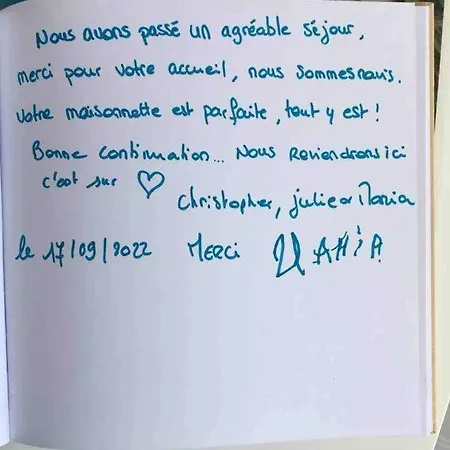 Nous avons passé un agréable séjour,
merci pour votre accueil, nous sommes ravis.
Votre maisonnette est parfaite, tout y est !
Bonne continuation... Nous Reviendrons ici
c'est sur ♡
Christopher, julie
le 17/09/2022 Merci